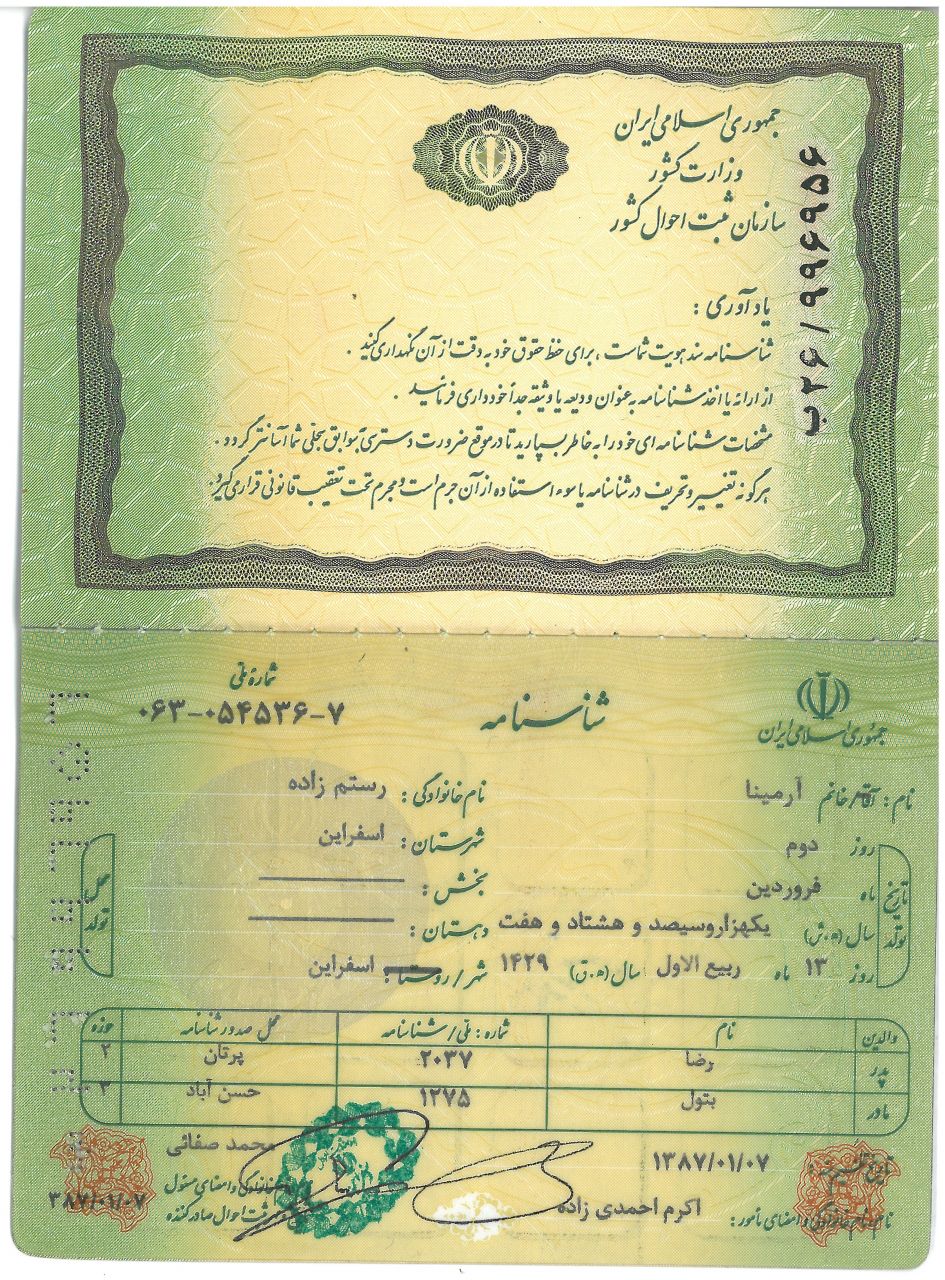 جمهوری اسلامی ایران
وزارت کشور
سازمان ثبت احوال کشور
ب۲۶/۹۹۶۹۵۶
یادآوری :
شناسنامه سند هویت شماست ، برای حفظ حقوق خود به دقت از آن نگهداری کنید .
از ارائه یا اخذ شناسنامه به عنوان ودیعه یا وثیقه جداً خودداری فرمائید .
مشخصات شناسنامه ای خود را به خاطر بسپارید تا در موقع ضرورت دسترسی به سوابق سجلی شما آسانتر گردد .
هرگونه تغییر و تحریف در شناسنامه یا سوء استفاده از آن جرم است و مجرم تحت تعقیب قانونی قرار می گیرد.
جمهوری اسلامی ایران
شناسنامه
شمارهٔ ملی
۰۶۳-۰۵۴۵۳۶-۷
نام : آقا/خانم آرمینا نام خانوادگی : رستم زاده
تاریخ تولد
روز دوم
ماه فروردین
سال (ه.ش) یکهزاروسیصد و هشتاد و هفت
روز ۱۳ ماه ربیع الاول سال (ه.ق) ۱۴۲۹
محل تولد
شهرستان : اسفراین
بخش :
دهستان :
شهر/روستا : اسفراین
والدین نام شماره : ملی/شناسنامه محل صدور شناسنامه حوزه
پدر رضا ۲۰۳۷ پرتان ۲
مادر بتول ۱۲۷۵ حسن آباد ۳
تاریخ تنظیم : ۱۳۸۷/۰۱/۰۷
نام، نام خانوادگی و امضای مأمور : اکرم احمدی زاده
محمد صفائی
خانوادگی و امضای مسئول
ثبت احوال صادرکننده
۳۸۷/۰۱/۰۷